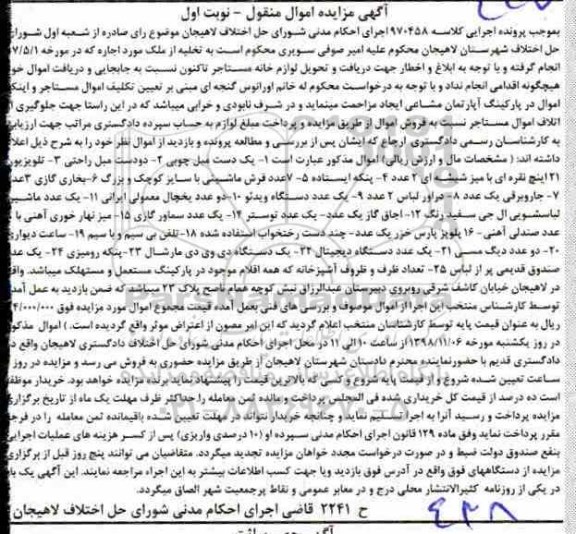 آگهی مزایده اموال منقول - نوبت اول
بموجب پرونده اجرایی کلاسه ۹۷۰۴۵۸ اجرای احکام مدنی شورای حل اختلاف لاهیجان موضوع رای صادره از شعبه اول شورای
حل اختلاف شهرستان لاهیجان محکوم علیه امیر صوفی سوپری محکوم است به تخلیه از ملک مورد اجاره که در مورخه ۹۷/۵/۱
انجام گرفته و با توجه به ابلاغ و اخطار جهت دریافت و تحویل لوازم خانه مستاجر تاکنون نسبت به جابجایی و دریافت اموال خود
هیچگونه اقدامی انجام نداد و با توجه به درخواست محکوم له خانم اورانوس گنجه ای مبنی بر تعیین تکلیف اموال مستاجر و اینکه
اموال در پارکینگ آپارتمان مشاعی ایجاد مزاحمت مینماید و در شرف نابودی و خرابی میباشد که در این راستا جهت جلوگیری از
اتلاف اموال مستاجر نسبت به فروش اموال از طریق مزایده و پرداخت مبلغ لوازم به حساب سپرده دادگستری مراتب جهت ارزیابی
به کارشناسان رسمی دادگستری ارجاع که ایشان پس از بررسی و مطالعه پرونده و بازدید از اموال نظر خود را به شرح ذیل اعلام
داشته اند: ( مشخصات مال و ارزش ریالی) اموال مذکور عبارت است ۱- یک دست مبل چوبی ۲- دودست مبل راحتی ۳- تلویزیون
۲۱ اینچ نقره ای با میز شیشه ای ۲ عدد ۴- پنکه ایستاده ۵- ۷عدد فرش ماشینی با سایز کوچک و بزرگ ۶- بخاری گازی ۳عدد
۷- جاروبرقی یک عدد ۸- دراور لباس ۲ عدد ۹- یک عدد دستگاه ویدئو ۱۰- دو عدد یخچال معمولی ایرانی ۱۱- یک عدد ماشین
لباسشویی ال جی سفید رنگ ۱۲- اجاق گاز یک عدد- یک عدد توستر ۱۴- یک عدد سماور گازی ۱۵- میز نهار خوری آهنی با
عدد صندلی آهنی- ۱۶ پلوپز پارس خزر یک عدد- چند دست رختخواب استفاده شده ۱۸- تلفن بی سیم و با سیم ۱۹- ساعت دیواری
۲۰- دو عدد دیگ مسی ۲۱- یک عدد دستگاه دیجیتال ۲۲- یک دستگاه دی وی دی مارشال ۲۳- پنکه رومیزی ۲۴- یک عدد
صندوق قدیمی پر از لباس ۲۵- تعداد ظرف و ظروف آشپزخانه که همه اقلام موجود در پارکینگ مستعمل و مستهلک میباشد. واقع
در لاهیجان خیابان کاشف شرقی روبروی دبیرستان عبدالرزاق نبش کوچه همام ناصح پلاک ۲۳ میباشد که ضمن بازدید به عمل آمده
توسط کارشناس منتخب این اجرا از اموال موصوف و بررسی های فنی بعمل آمده قیمت مجموع اموال مورد مزایده فوق ۴/۰۰۰/۰۰۰
ریال به عنوان قیمت پایه توسط کارشناسان منتخب اعلام گردید که این امر مصون از اعتراض موثر واقع گردیده است. ) اموال مذکور
در روز یکشنبه مورخه ۱۳۹۸/۱۱/۰۶ از ساعت ۱۰ الی ۱۱ در محل اجرای احکام مدنی شورای حل اختلاف دادگستری لاهیجان واقع در
دادگستری قدیم با حضورنماینده محترم دادستان شهرستان لاهیجان از طریق مزایده حضوری به فروش می رسد و مزایده در روز و
ساعت تعیین شده شروع و از قیمت پایه شروع و کسی که بالاترین قیمت را پیشنهاد نماید برنده مزایده خواهد بود. خریدار موظف
است ده درصد از قیمت کل خریداری شده فی المجلس پرداخت و مانده ثمن معامله را حداکثر ظرف مهلت یک ماه از تاریخ برگزاری
مزایده پرداخت و رسید آنرا به اجرا تسلیم نماید و چنانچه خریدار نتواند در مهلت تعیین شده باقیمانده ثمن معامله را در فرجه
مقرر پرداخت نماید وفق ماده ۱۲۹ قانون اجرای احکام مدنی سپرده او (۱۰ درصدی واریزی) پس از کسر هزینه های عملیات اجرایی
بنفع صندوق دولت ضبط و در صورت درخواست مجدد خواهان مزایده تجدید میگردد. متقاضیان می توانند پنج روز قبل از برگزاری
مزایده از دستگاههای فوق واقع در آدرس فوق بازدید ویا جهت کسب اطلاعات بیشتر به این اجراء مراجعه نمایند. این آگهی یک بار
در یکی از روزنامه کثیرالانتشار محلی درج و در معابر عمومی و نقاط پرجمعیت شهر الصاق میگردد.
ح ۲۲۴۱ قاضی اجرای احکام مدنی شورای حل اختلاف لاهیجان